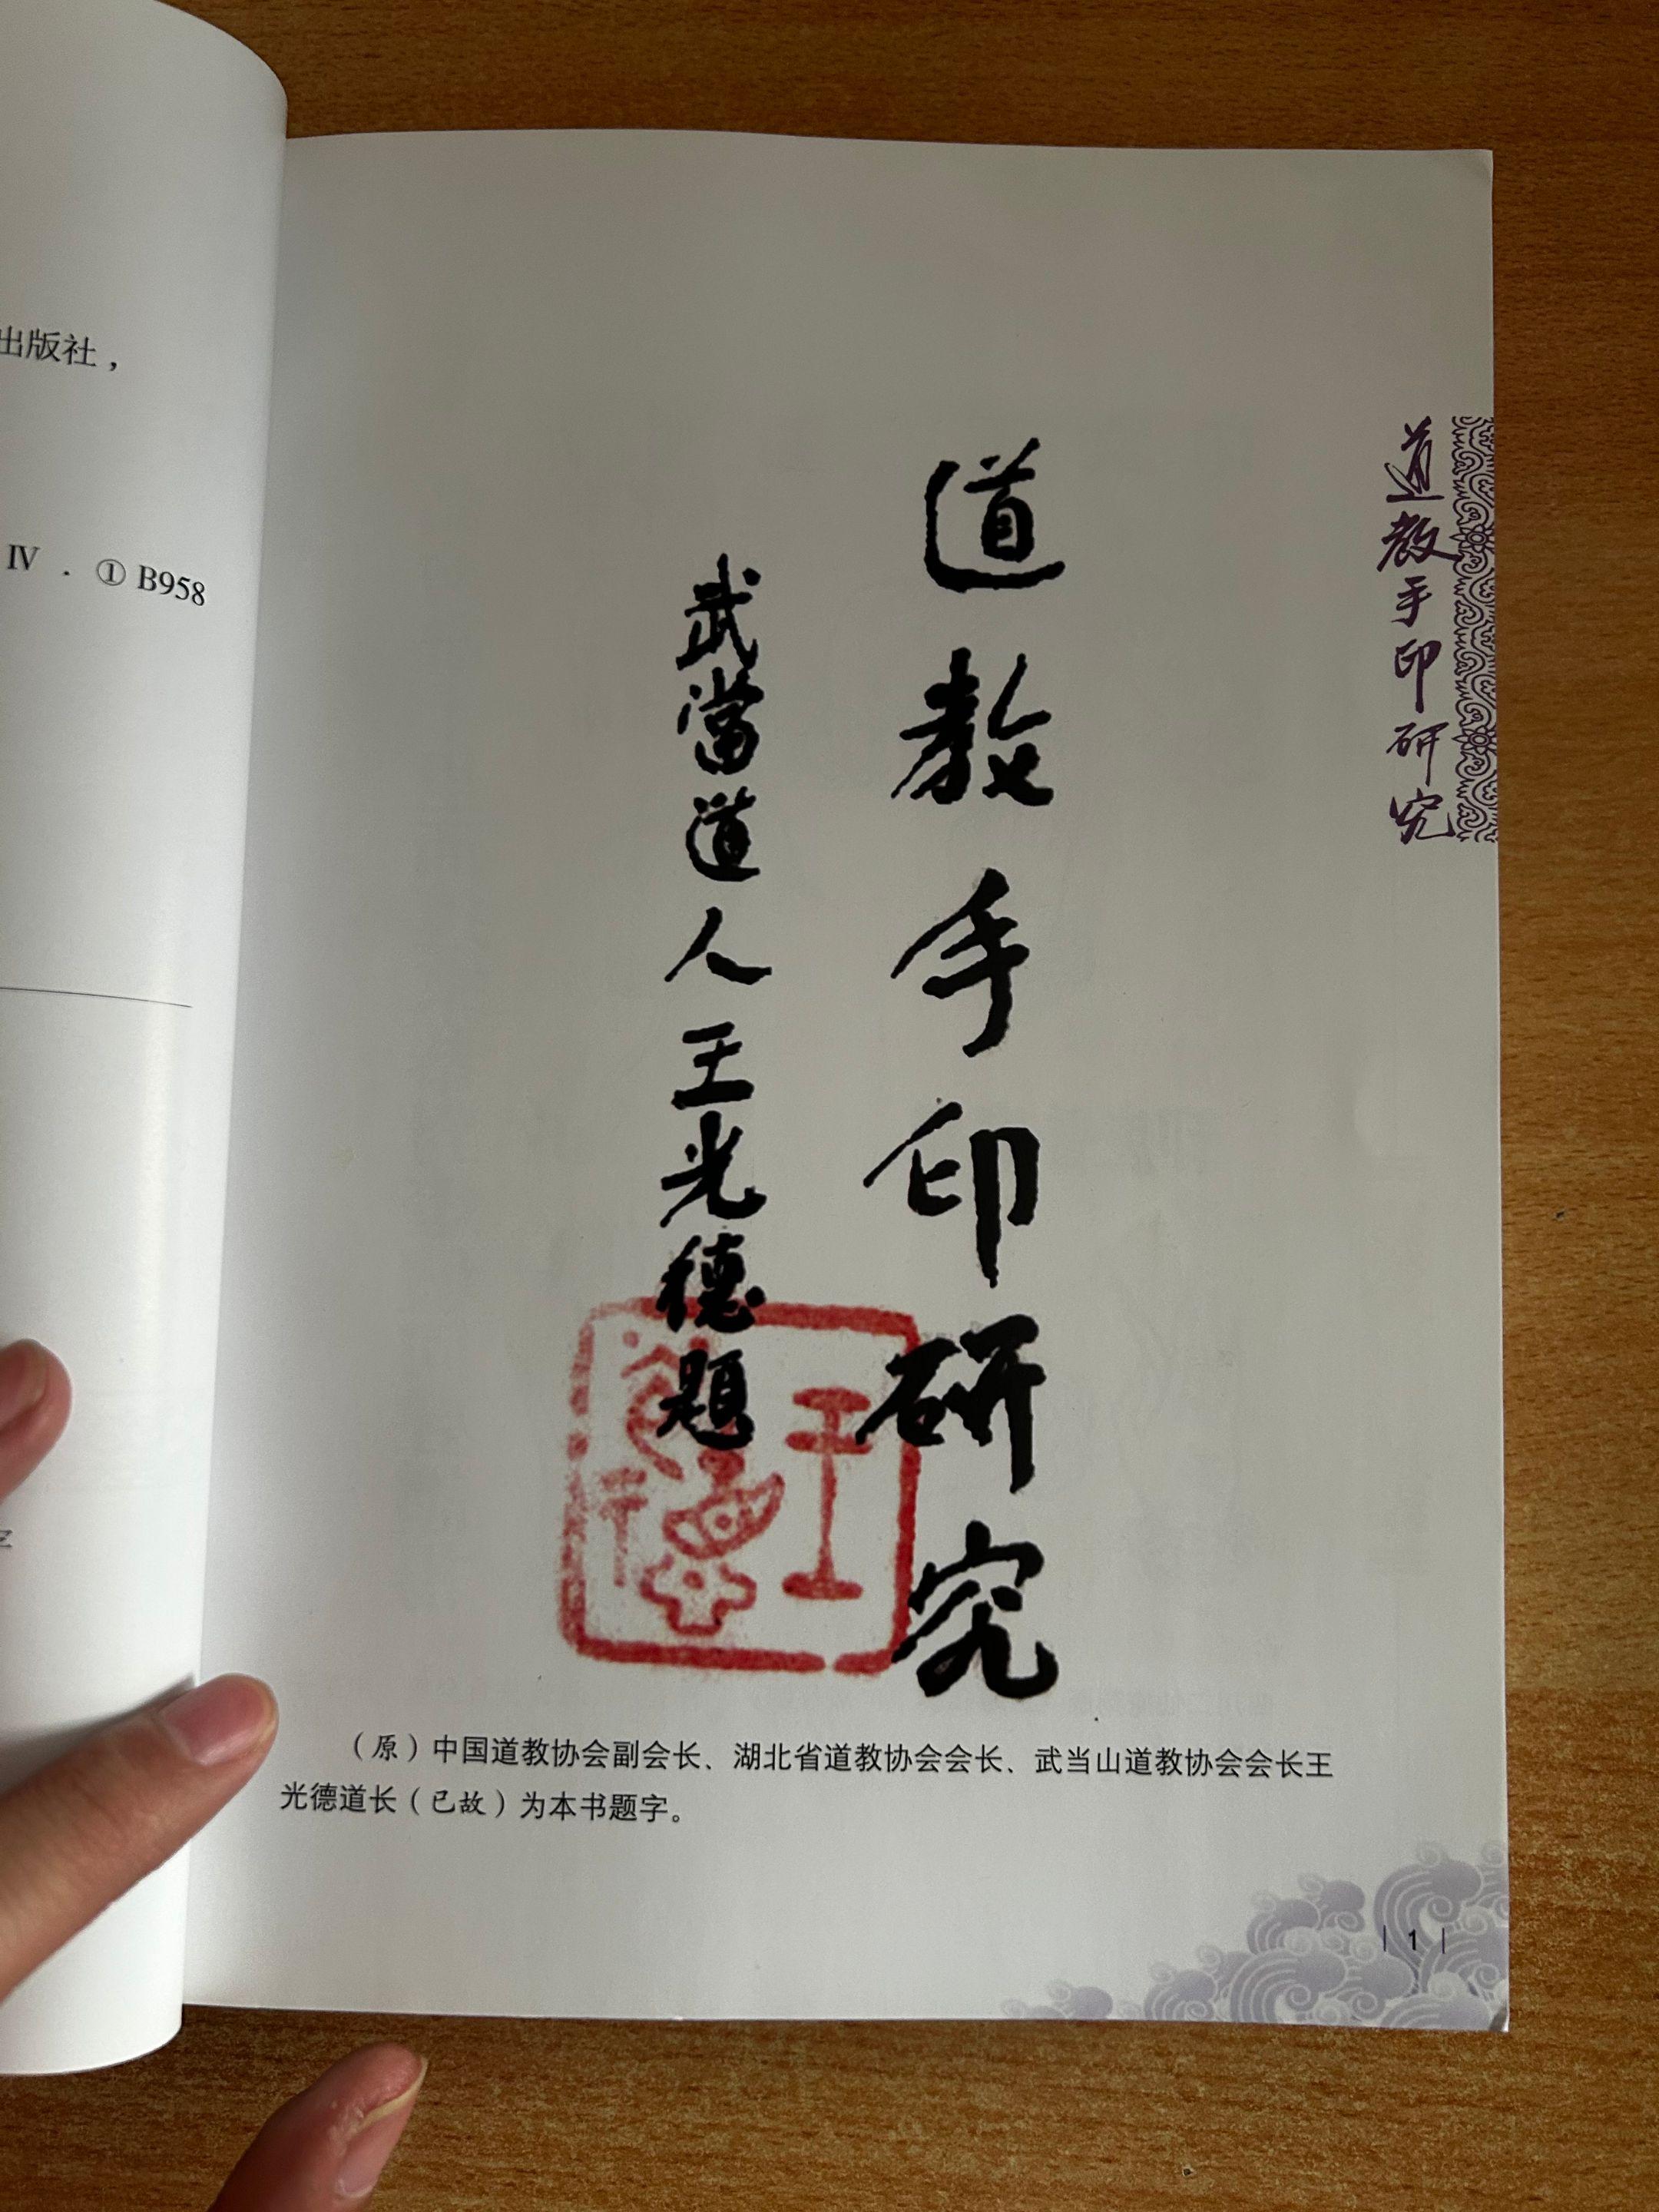 出版社，
Ⅳ．①B958
道教手印研究
武當道人王光德題
道教手印研究
（原）中国道教协会副会长、湖北省道教协会会长、武当山道教协会会长王
光德道长（已故）为本书题字。
1